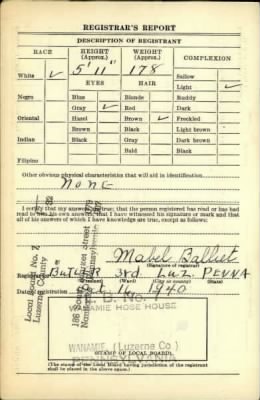 REGISTRAR'S REPORT
DESCRIPTION OF REGISTRANT
RACE
HEIGHT (Approx.)
WEIGHT (Approx.)
COMPLEXION
5' 11"
178
White ✓
EYES
HAIR
Sallow
Light ✓
Negro
Blue
Blonde
Ruddy
Gray ✓
Red
Dark
Oriental
Hazel
Brown ✓
Freckled
Brown
Black
Light brown
Indian
Black
Gray
Dark brown
Bald
Black
Filipino
Other obvious physical characteristics that will aid in identification
NONE
I certify that my answers are true; that the person registered has read or has had
read to him his own answers; that I have witnessed his signature or mark and that
all of his answers of which I have knowledge are true, except as follows:
Local Board No. 7
Luzerne County
Mabel Balliet
(Signature of registrar)
BUTLER 3rd LUZ. PENNA
(Ward) (City or county) (State)
Date of registration Oct. 16, 1940
WANAMIE HOSE HOUSE
WANAMIE, (Luzerne Co)
PENNSYLVANIA
STAMP OF LOCAL BOARD
(The stamp of the Local Board having jurisdiction of the registrant
shall be placed in the above space.)